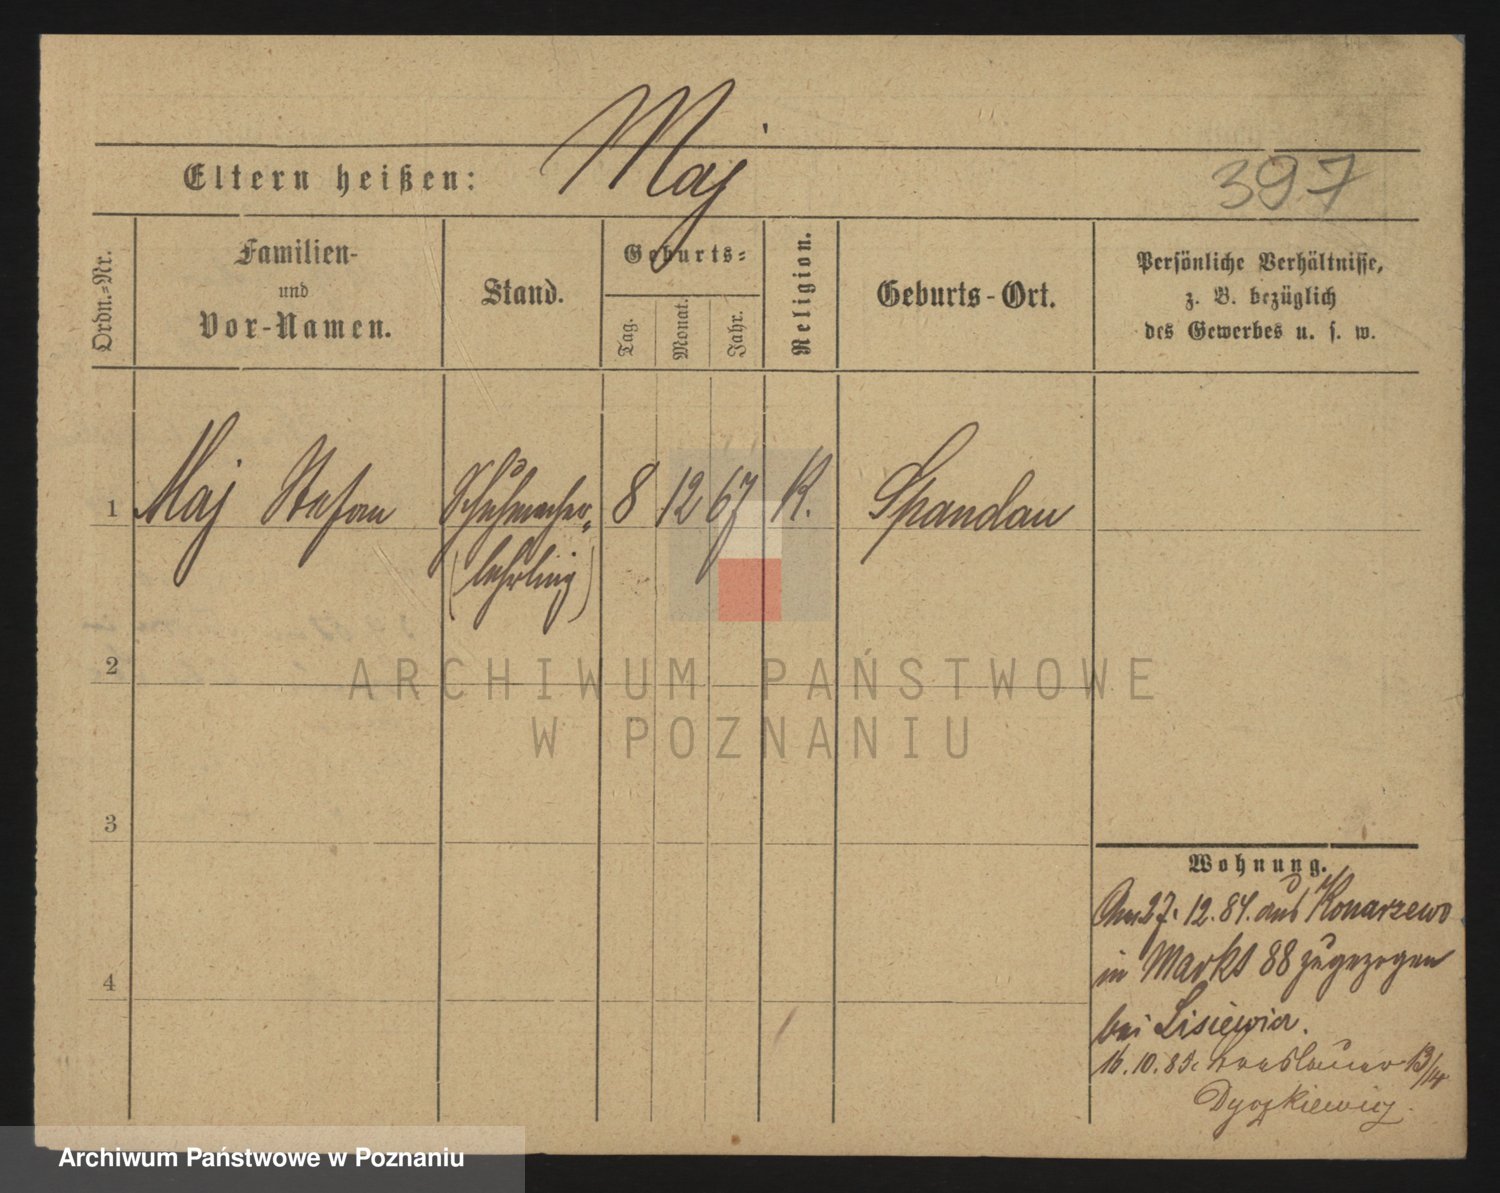 Maj
Eltern heißen:
397
Ordn.-Nr.
Familien-
und
Vor-Namen.
Stand.
Geburts-
Tag.
Monat.
Jahr.
Religion.
Geburts-Ort.
Persönliche Verhältnisse,
z. B. bezüglich
des Gewerbes u. s. w.
1 Maj Stefan Schuhmacher- 8 12 67 K. Spandau
(lehrling)
2
3
4
Wohnung.
Am 27. 12. 84. aus Konarzewo
in Markt 88 zugezogen
bei Lisiewicz.
16. 10. 85. Breslauer 13/14
ARCHIWUM PAŃSTWOWE
W POZNANIU
Archiwum Państwowe w Poznaniu